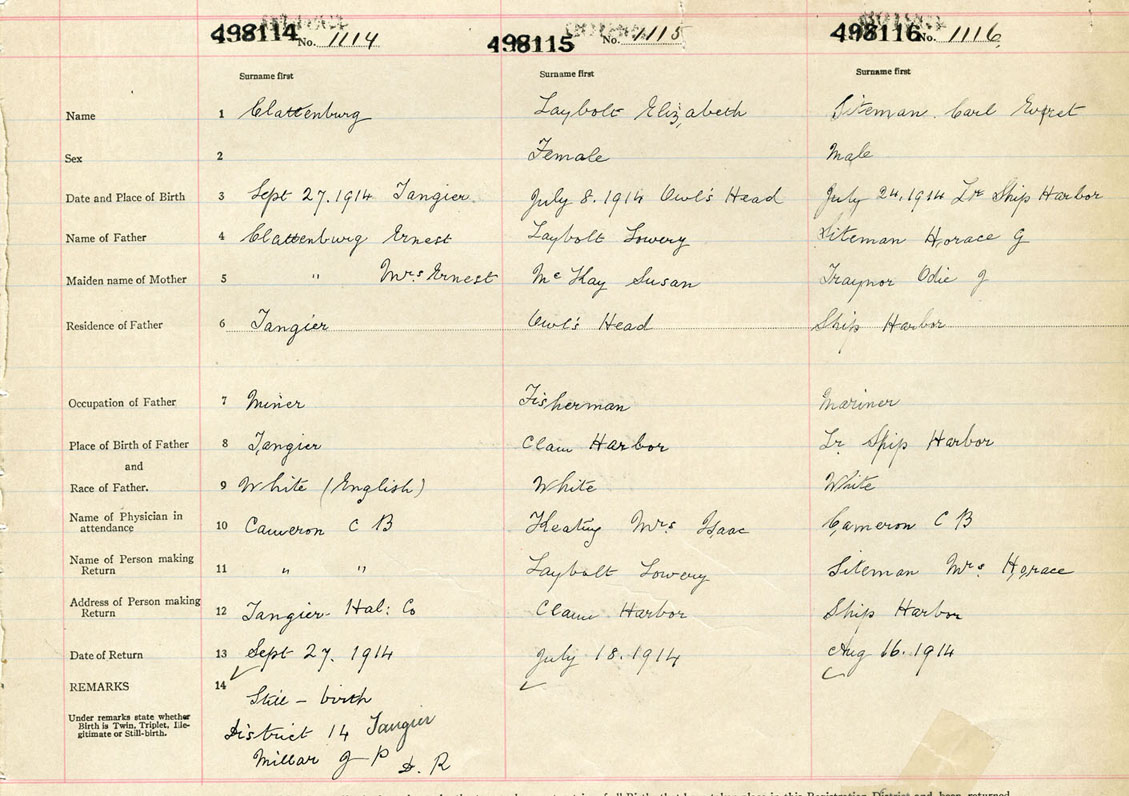 498114 No. 1114 498115 No. 1115 498116 No. 1116
Surname first Surname first Surname first
Name 1 Clattenburg Laybolt Elizabeth Siteman Carl
Sex 2 Female Male
Date and Place of Birth 3 Sept 27. 1914 Tangier. July 8. 1914 Owl's Head July 24, 1914 Lr Ship Harbor
Name of Father 4 Clattenburg Ernest Laybolt Lowery Siteman Horace G
Maiden name of Mother 5 " Mrs Ernest Mc Kay Susan Traynor Odie J
Residence of Father 6 Tangier Owl's Head Ship Harbor
Occupation of Father 7 Miner Fisherman Mariner
Place of Birth of Father 8 Tangier Clam Harbor Lr. Ship Harbor
and
Race of Father. 9 White (English) White White
Name of Physician in attendance 10 Cameron C B Keating Mrs Isaac Cameron C B
Name of Person making Return 11 " " Laybolt Lowery Siteman Mrs Horace
Address of Person making Return 12 Tangier- Hal: Co Clam Harbor Ship Harbor
Date of Return 13 Sept 27. 1914 July 18. 1914 Aug 16. 1914
REMARKS 14 Still - birth
Under remarks state whether
Birth is Twin, Triplet, Ille-
gitimate or Still-birth.
District 14 Tangier
Millar J P D. R